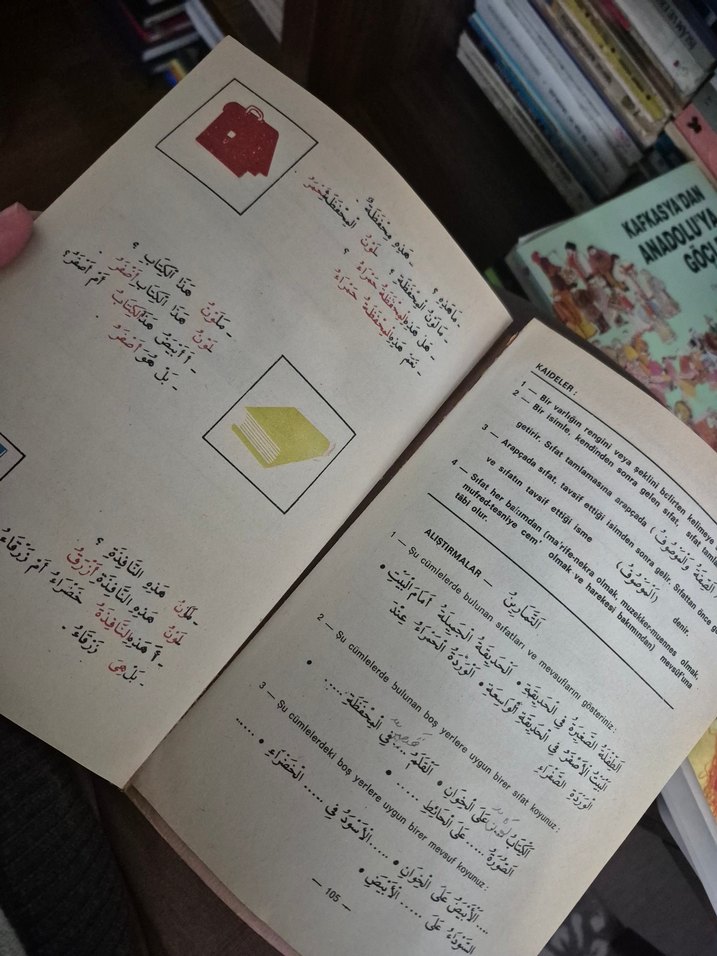 - هَذِهِ مِحْفَظَةٌ .
لَوْنُ الْمِحْفَظَةِ
- مَاهَذِهِ ؟
- مَالَوْنُ الْمِحْفَظَةِ ؟
- هَلْ هَذِهِ الْمِحْفَظَةُ حَمْرَاءُ ؟
- نَعَمْ هَذِهِ الْمِحْفَظَةُ حَمْرَاءُ
- مَالَوْنُ هَذَا الْكِتَابِ ؟
لَوْنُ هَذَا الْكِتَابِ أَصْفَرُ .
- أَ أَبْيَضُ هَذَا الْكِتَابُ أَمْ أَصْفَرُ ؟
- بَلْ هُوَ أَصْفَرُ .
- مَالَوْنُ هَذِهِ النَّافِذَةِ ؟
لَوْنُ هَذِهِ النَّافِذَةِ أَزْرَقُ
- أَ هَذِهِ النَّافِذَةُ خَضْرَاءُ أَمْ زَرْقَاءُ
- بَلْ هِىَ زَرْقَاءُ .
KAİDELER :
1 — Bir varlığın rengini veya şeklini belirten kelimeye
2 — Bir isimle, kendinden sonra gelen sıfat, sıfat
getirir. Sıfat tamlamasına arapçada (الصِّفَةُ وَالْمَوْصُوفُ)
3 — Arapçada sıfat, tavsif ettiği isimden sonra gelir. Sıfattan önce
ve sıfatın tavsif ettiği isme (الْمَوْصُوفُ) denir.
4 — Sıfat her bakımdan (ma'rife-nekra olmak, muzekker-muennes olmak,
mufred-tesniye cem' olmak ve harekesi bakımından) mevsûf'una
tâbi olur.
ALIŞTIRMALAR — اَلتَّمَارِينُ
1 — Şu cümlelerde bulunan sıfatları ve mevsuflarını gösteriniz:
الطِّفْلَةُ الصَّغِيرَةُ فِي الْحَدِيقَةِ • الْحَدِيقَةُ الْجَمِيلَةُ أَمَامَ الْبَيْتِ •
الْبَيْتُ الْأَصْفَرُ فِي الْحَدِيقَةِ الْوَاسِعَةِ • الْوَرْدَةُ الْحَمْرَاءُ عِنْدَ
الْوَرْدَةِ الصَّفْرَاءِ •
2 — Şu cümlelerde bulunan boş yerlere uygun birer sıfat koyunuz :
اَلْكِتَابُ عَلَى الْخِوَانِ • الْقَلَمُ .... فِي الْمِحْفَظَةِ ......
الصُّورَةُ ..... عَلَى الْحَائِطِ ...... •
3 — Şu cümlelerdeki boş yerlere uygun birer mevsuf koyunuz :
.... الْأَبْيَضُ عَلَى الْخِوَانِ • ..... الْأَسْوَدُ فِي ..... الْخَضْرَاءِ • .....
السَّوْدَاءُ عَلَى ...... الْأَبْيَضِ •
— 105 —
KAFKASYA'DAN
ANADOLU'YA